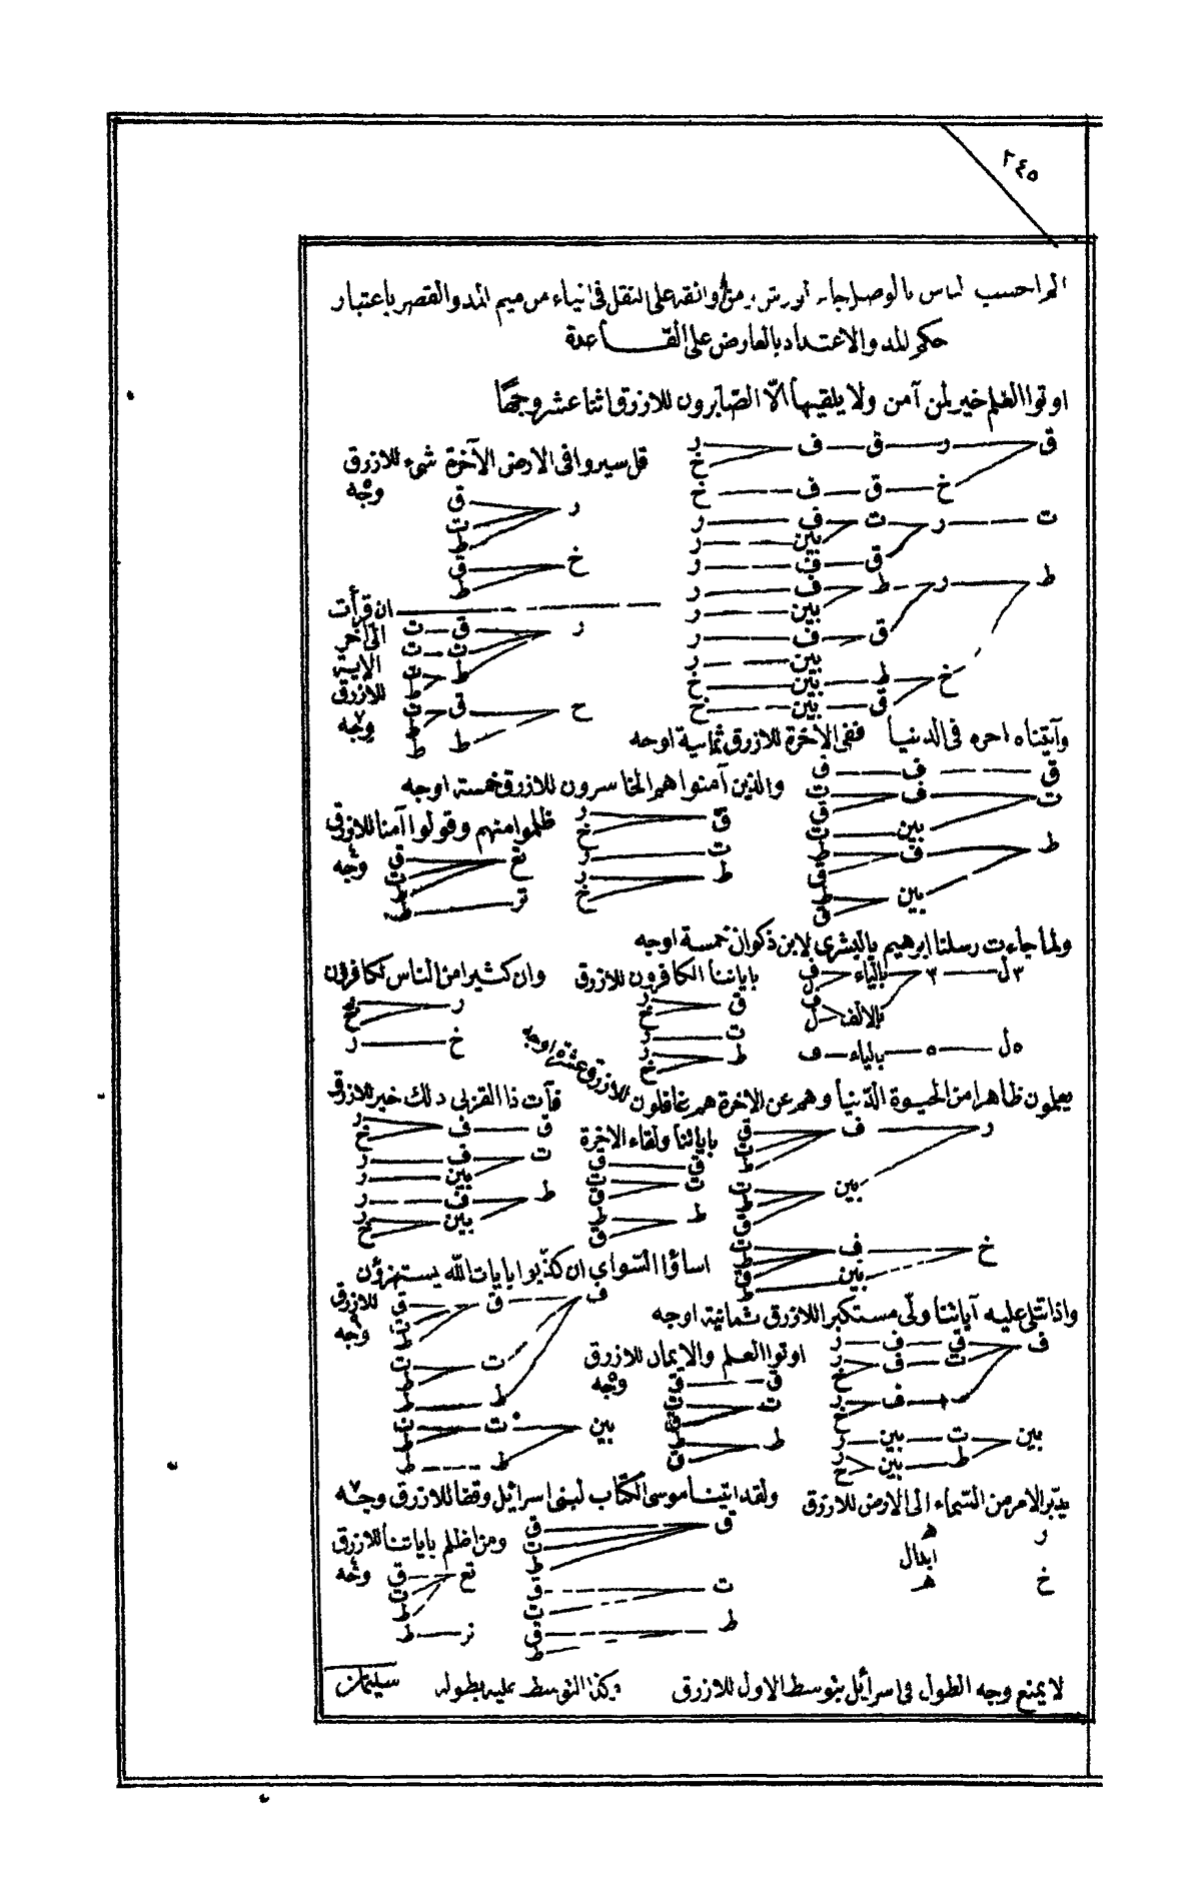 ٢٤٥
الم احسب الناس بالوصل جاء لورش ومن وافقه على النقل فى اثناء من ميم المد والقصر باعتبار
حكم المد والاعتداد بالعارض على القاعدة
اوتوا العلم خير لمن آمن ولا يلقيها الا الصابرون للازرق اثنا عشر وجها
ق ر ق ف ر
خ
خ ق ف خ
ت ر ت ف ر
بين ر
ق ف ر
ط ر ط ف ر
بين ر
ق ف ر
بين ر
خ ط بين خ
ق بين خ
قل سيروا فى الارض الآخرة شىء للازرق
وجه
ر ق
ت
ط
خ ق
ط
ان قرأت
الى آخر
الاية
للازرق
وجه
ر ق ت
ت ت
ط ت
ط
خ ق ت
ط
ط ط
وآتيناه اجره فى الدنيا ففى الآخرة للازرق ثمانية اوجه
ق ف ق
ت ف ت
ق
بين ت
ط ف ط
ق
بين ط
ق
والذين آمنوا هم الخاسرون للازرق خمسة اوجه
ق ر
خ
ت ر
ط ر
خ
ظلموا منهم وقولوا آمنا للازرق
وجه
تغ ق
ت
ط
تر ط
ولما جاءت رسلنا ابرهيم بالبشرى لابن ذكوان خمسة اوجه
٣ل ٣ بالياء ف
ل
بالالف ف
ل
٥ل ٥ بالياء ف
باياتنا الكافرون للازرق
ق ر
خ
ت ر
ط ر
خ
وان كثيرا من الناس لكافرون
ر ر
خ
خ ر
يعلمون ظاهرا من الحيوة الدنيا وهم عن الاخرة هم غافلون للازرق عشرة اوجه
ر ف ق
ت
ط
بين ت
ط
ق
خ ف ت
ط
بين ق
ط
باياتنا ولقاء الآخرة
ق ق
ت ت
ق
ط ط
ق
فآت ذا القربى ذلك خير للازرق
ق ف ر
خ
ت ف ر
بين ر
ط ف ر
بين ر
خ
اساؤا السواى ان كذبوا بايات الله يستهزؤن
للازرق
وجه
ف ق ق
ت
ط
ت ت
ط
ط ط
بين ت ت
ط
ط ط
واذا تتلى عليه آياتنا ولى مستكبرا للازرق ثمانية اوجه
ف ق ف ر
ت ف ر
خ
ط ف ر
خ
بين ت بين ر
ط بين ر
خ
اوتوا العلم والايمان للازرق
وجه
ق ق
ت ت
ق
ط ط
ق
يدبر الامر من السماء الى الارض للازرق
ر هـ
ابدال
خ هـ
ولقد اتينا موسى الكتاب لبنى اسرائيل وقفا للازرق وجه
ق ق
ت
ط
ت ق
ت
ط ق
ط
ومن اظلم باياتنا للازرق
وجه
تغ ق
ت
ط
تر ط
لا يمنع وجه الطول فى اسرائيل بتوسط الاول للازرق وكذا التوسط عليه بطوله سليمان